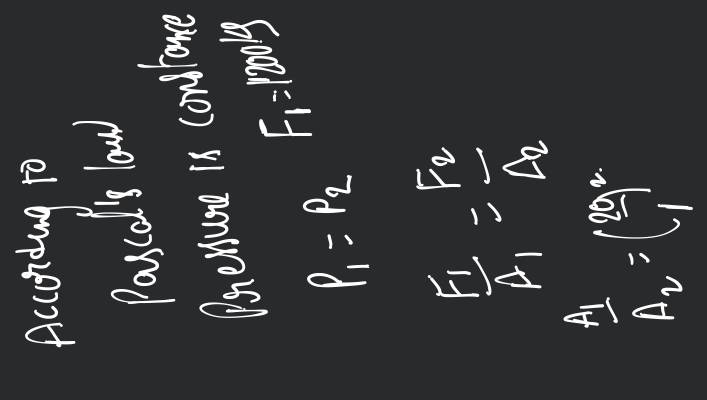 According to
Pascal's law
Pressure is constance
F₁ = 1200 kg
P₁ = P₂
F₁/A₁ = F₂/A₂
A₁/A₂ = (20/1)²